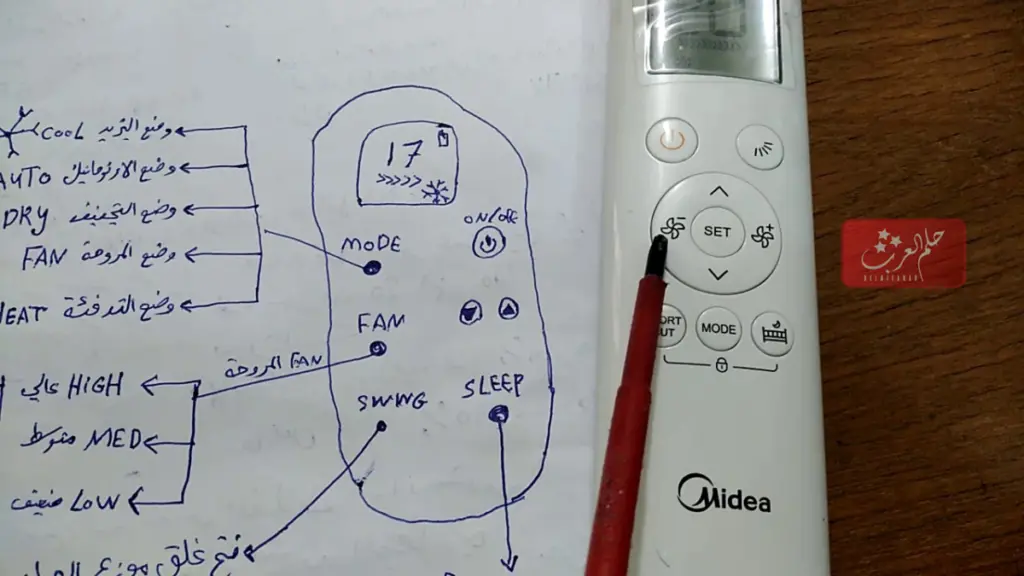 COOL وضع التبريد
AUTO وضع الاوتوماتيك
DRY وضع التجفيف
FAN وضع المروحة
HEAT وضع التدفئة
17
MODE
ON/OFF
FAN
المروحة FAN
HIGH عالي
MED متوسط
LOW ضعيف
SWNG
SLEEP
فتح غلق موزع
SET
MODE
Midea
حلم العرب